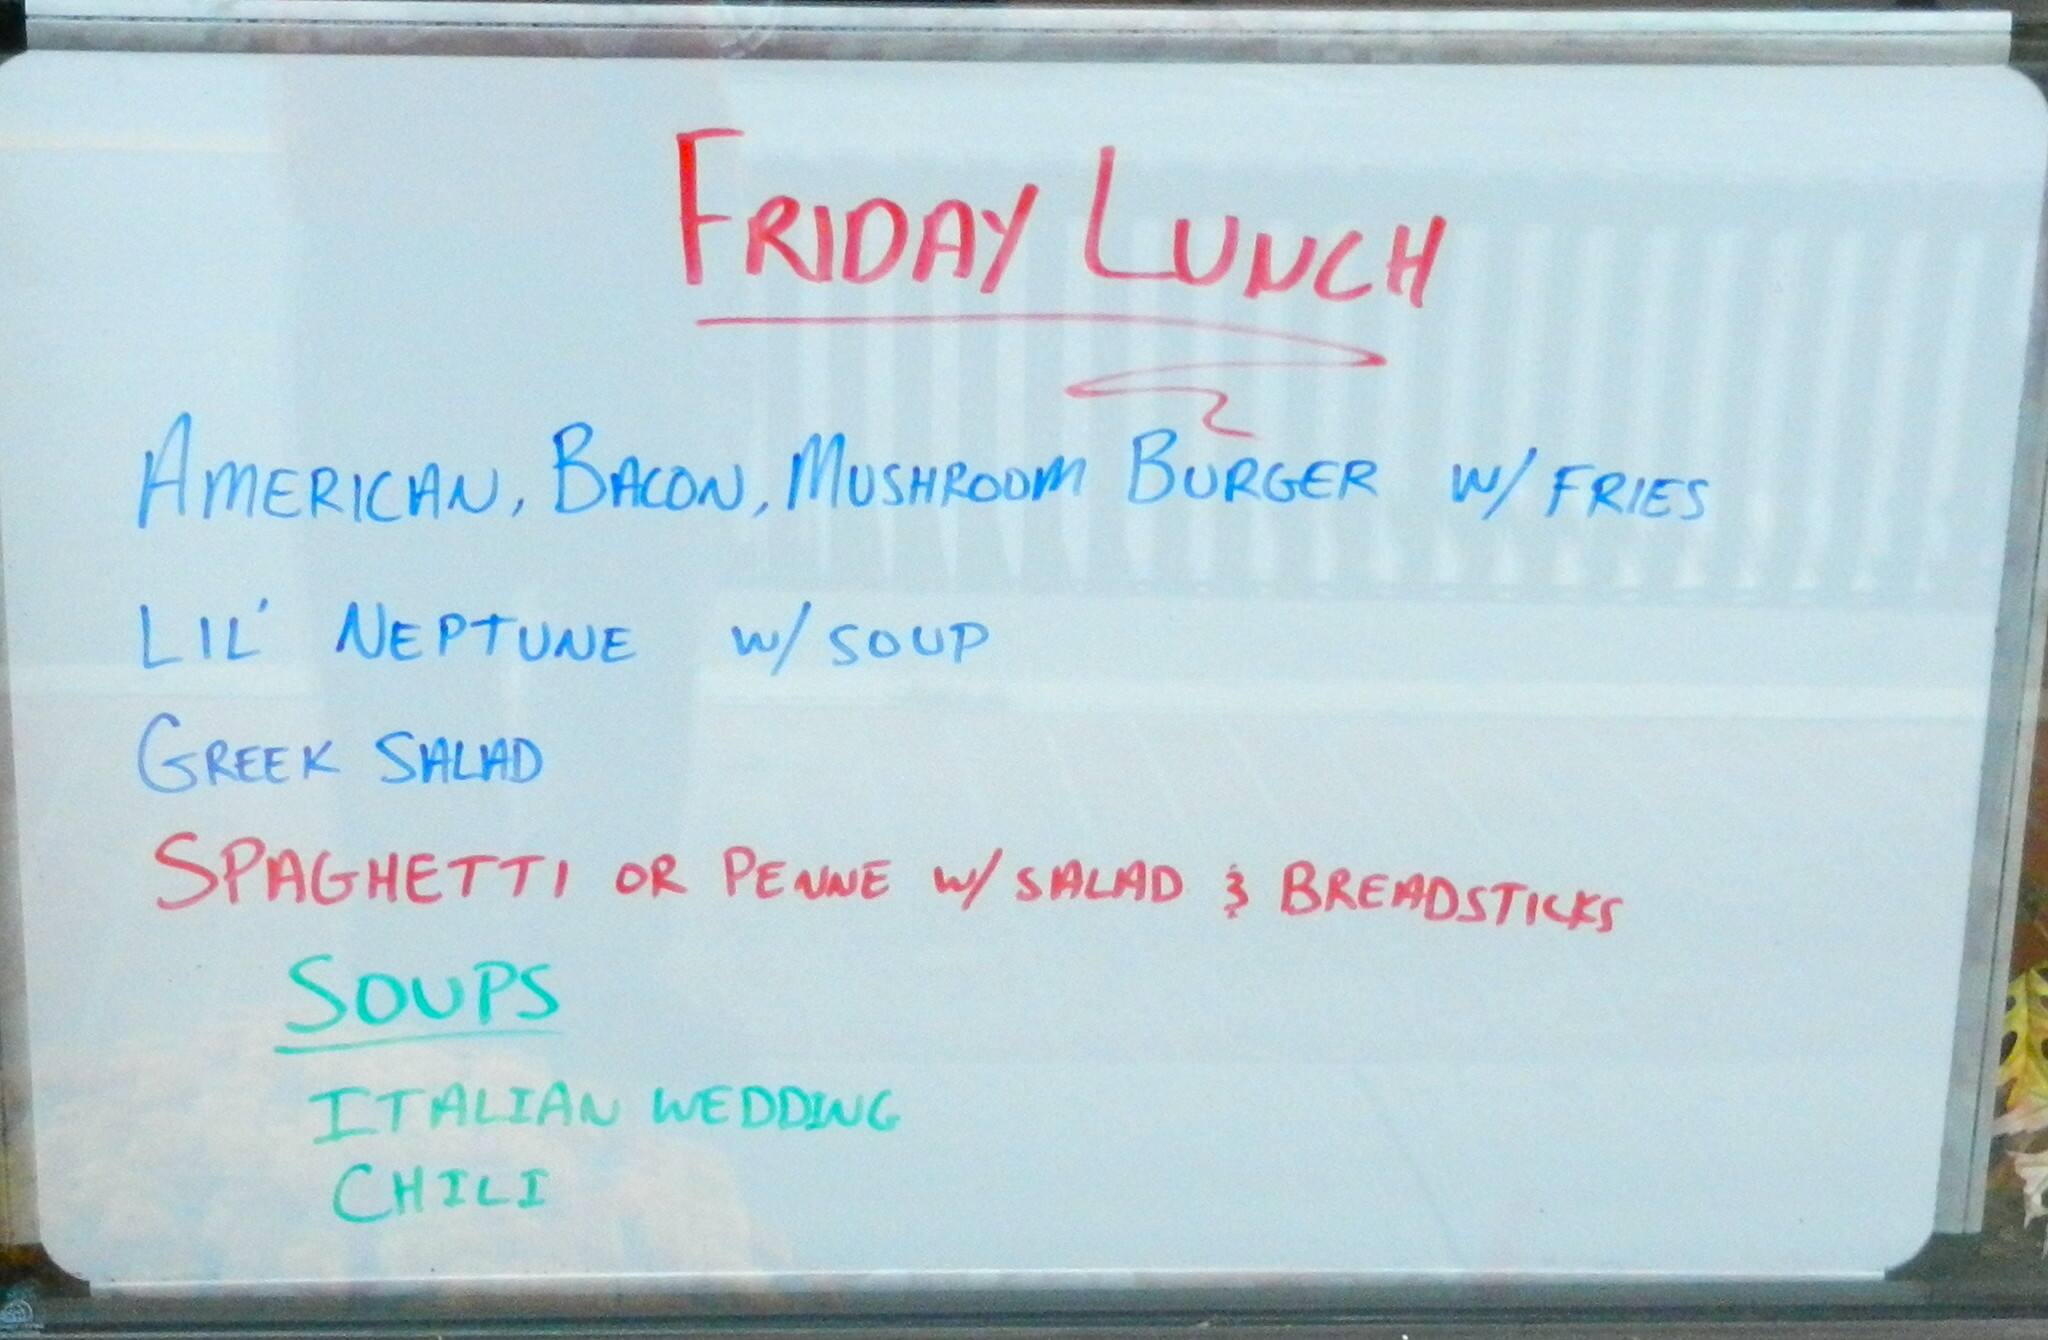 FRIDAY LUNCH
AMERICAN, BACON, MUSHROOM BURGER W/ FRIES
LIL' NEPTUNE W/ SOUP
GREEK SALAD
SPAGHETTI OR PENNE W/ SALAD & BREADSTICKS
SOUPS
ITALIAN WEDDING
CHILI